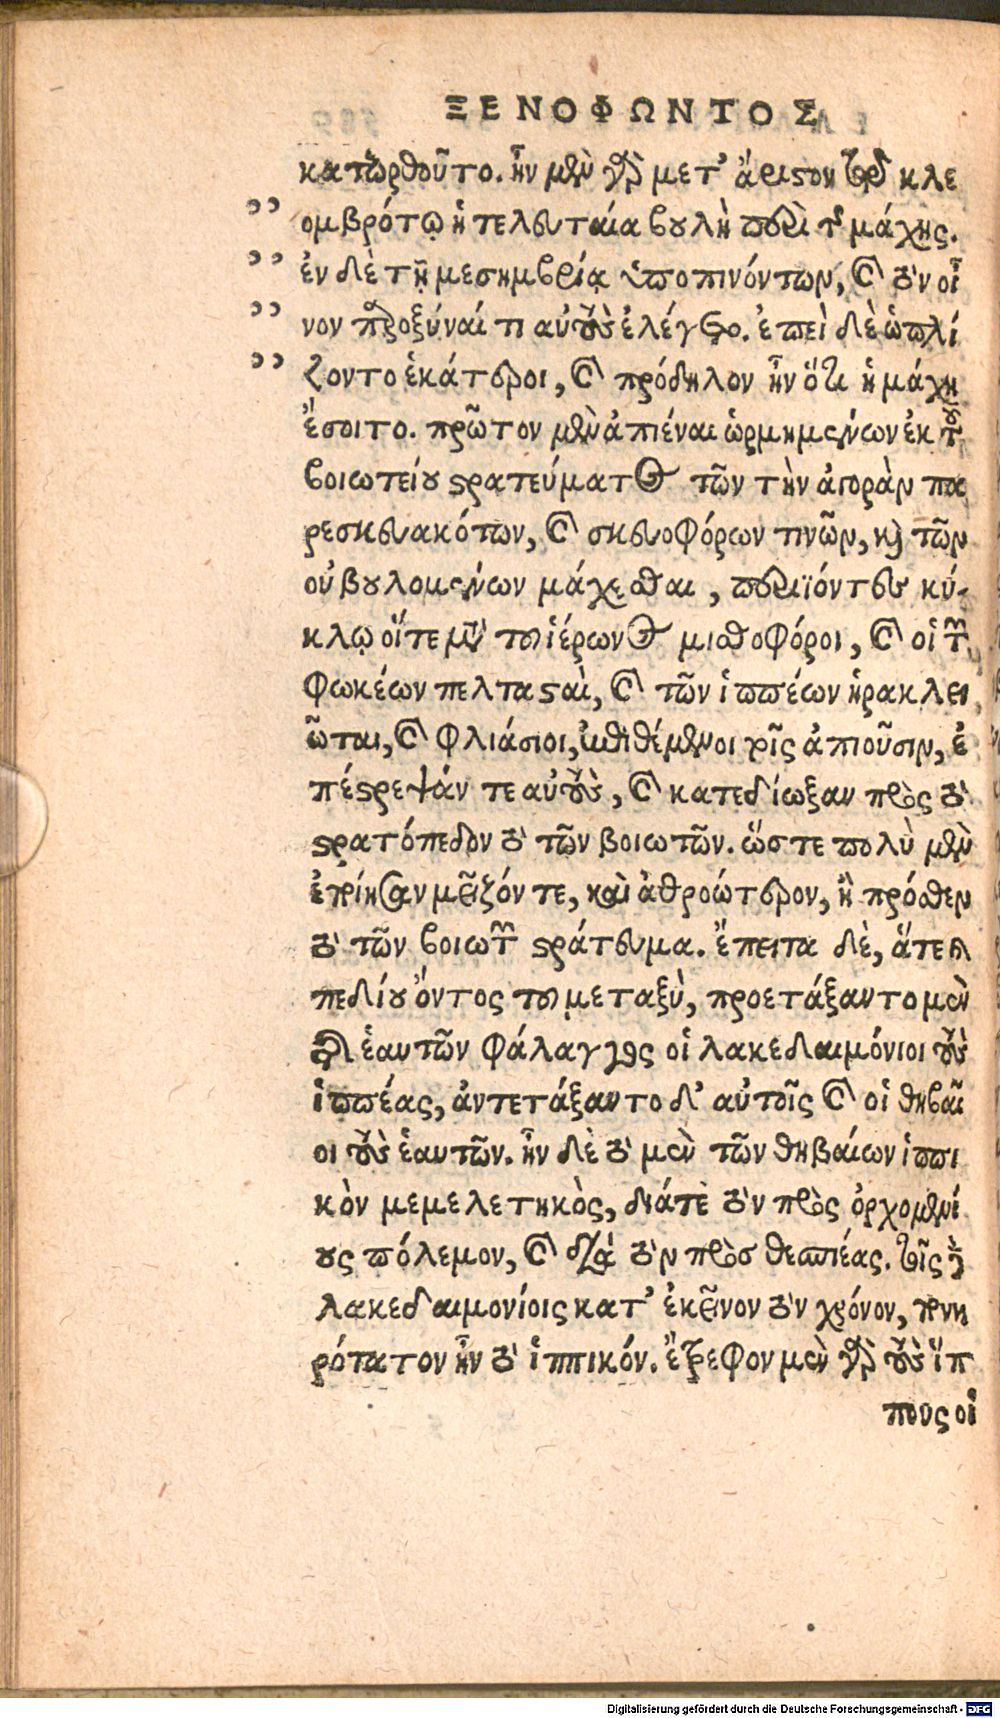 ΞΕΝΟΦΩΝΤΟΣ
κατωρθοῦτο. ἦν μὲν γὰρ μετ' ἄριστον τῷ κλε
ομβρότῳ ἡ τελευταία βουλὴ περὶ τῆς μάχης.
ἐν δὲ τῇ μεσημβρίᾳ ὑποπινόντων, καὶ τὸν οἶ
νον παροξύναί τι αὐτοὺς ἐλέγοντο. ἐπεὶ δὲ ὡπλί
ζοντο ἑκάτεροι, καὶ πρόδηλον ἦν ὅτι ἡ μάχη
ἔσοιτο. πρῶτον μὲν ἀπιέναι ὡρμημένων ἐκ τοῦ
βοιωτείου στρατεύματος τῶν τὴν ἀγορὰν πα
ρεσκευακότων, καὶ σκευοφόρων τινῶν, καὶ τῶν
οὐ βουλομένων μάχεσθαι, περιϊόντες κύ-
κλῳ οἵ τε μετὰ τοῦ ἱέρωνος μισθοφόροι, καὶ οἱ τῶν
φωκέων πελτασταὶ, καὶ τῶν ἱππέων ἡρακλει
ῶται, καὶ φλιάσιοι, ἐπιθέμενοι τοῖς ἀπιοῦσιν, ἐ
πέστρεψάν τε αὐτοὺς, καὶ κατεδίωξαν πρὸς τὸ
στρατόπεδον τὸ τῶν βοιωτῶν. ὥστε πολὺ μὲν
ἐποίησαν μεῖζόν τε, καὶ ἀθροώτερον, ἢ πρόσθεν
τὸ τῶν βοιωτῶν στράτευμα. ἔπειτα δὲ, ἅτε καὶ
πεδίου ὄντος τοῦ μεταξὺ, προετάξαντο μὲν
τῆς ἑαυτῶν φάλαγγος οἱ λακεδαιμόνιοι τοὺς
ἱππέας, ἀντετάξαντο δ' αὐτοῖς καὶ οἱ θηβαῖ
οι τοὺς ἑαυτῶν. ἦν δὲ τὸ μὲν τῶν θηβαίων ἱππι
κὸν μεμελετηκὸς, διά τε τὸν πρὸς ὀρχομενί
ους πόλεμον, καὶ διὰ τὸν πρὸς θεσπιέας. τοῖς δὲ
λακεδαιμονίοις κατ' ἐκεῖνον τὸν χρόνον, πονη
ρότατον ἦν τὸ ἱππικόν. ἔτρεφον μὲν γὰρ τοὺς ἵπ
πους οἱ
Digitalisierung gefördert durch die Deutsche Forschungsgemeinschaft - DFG